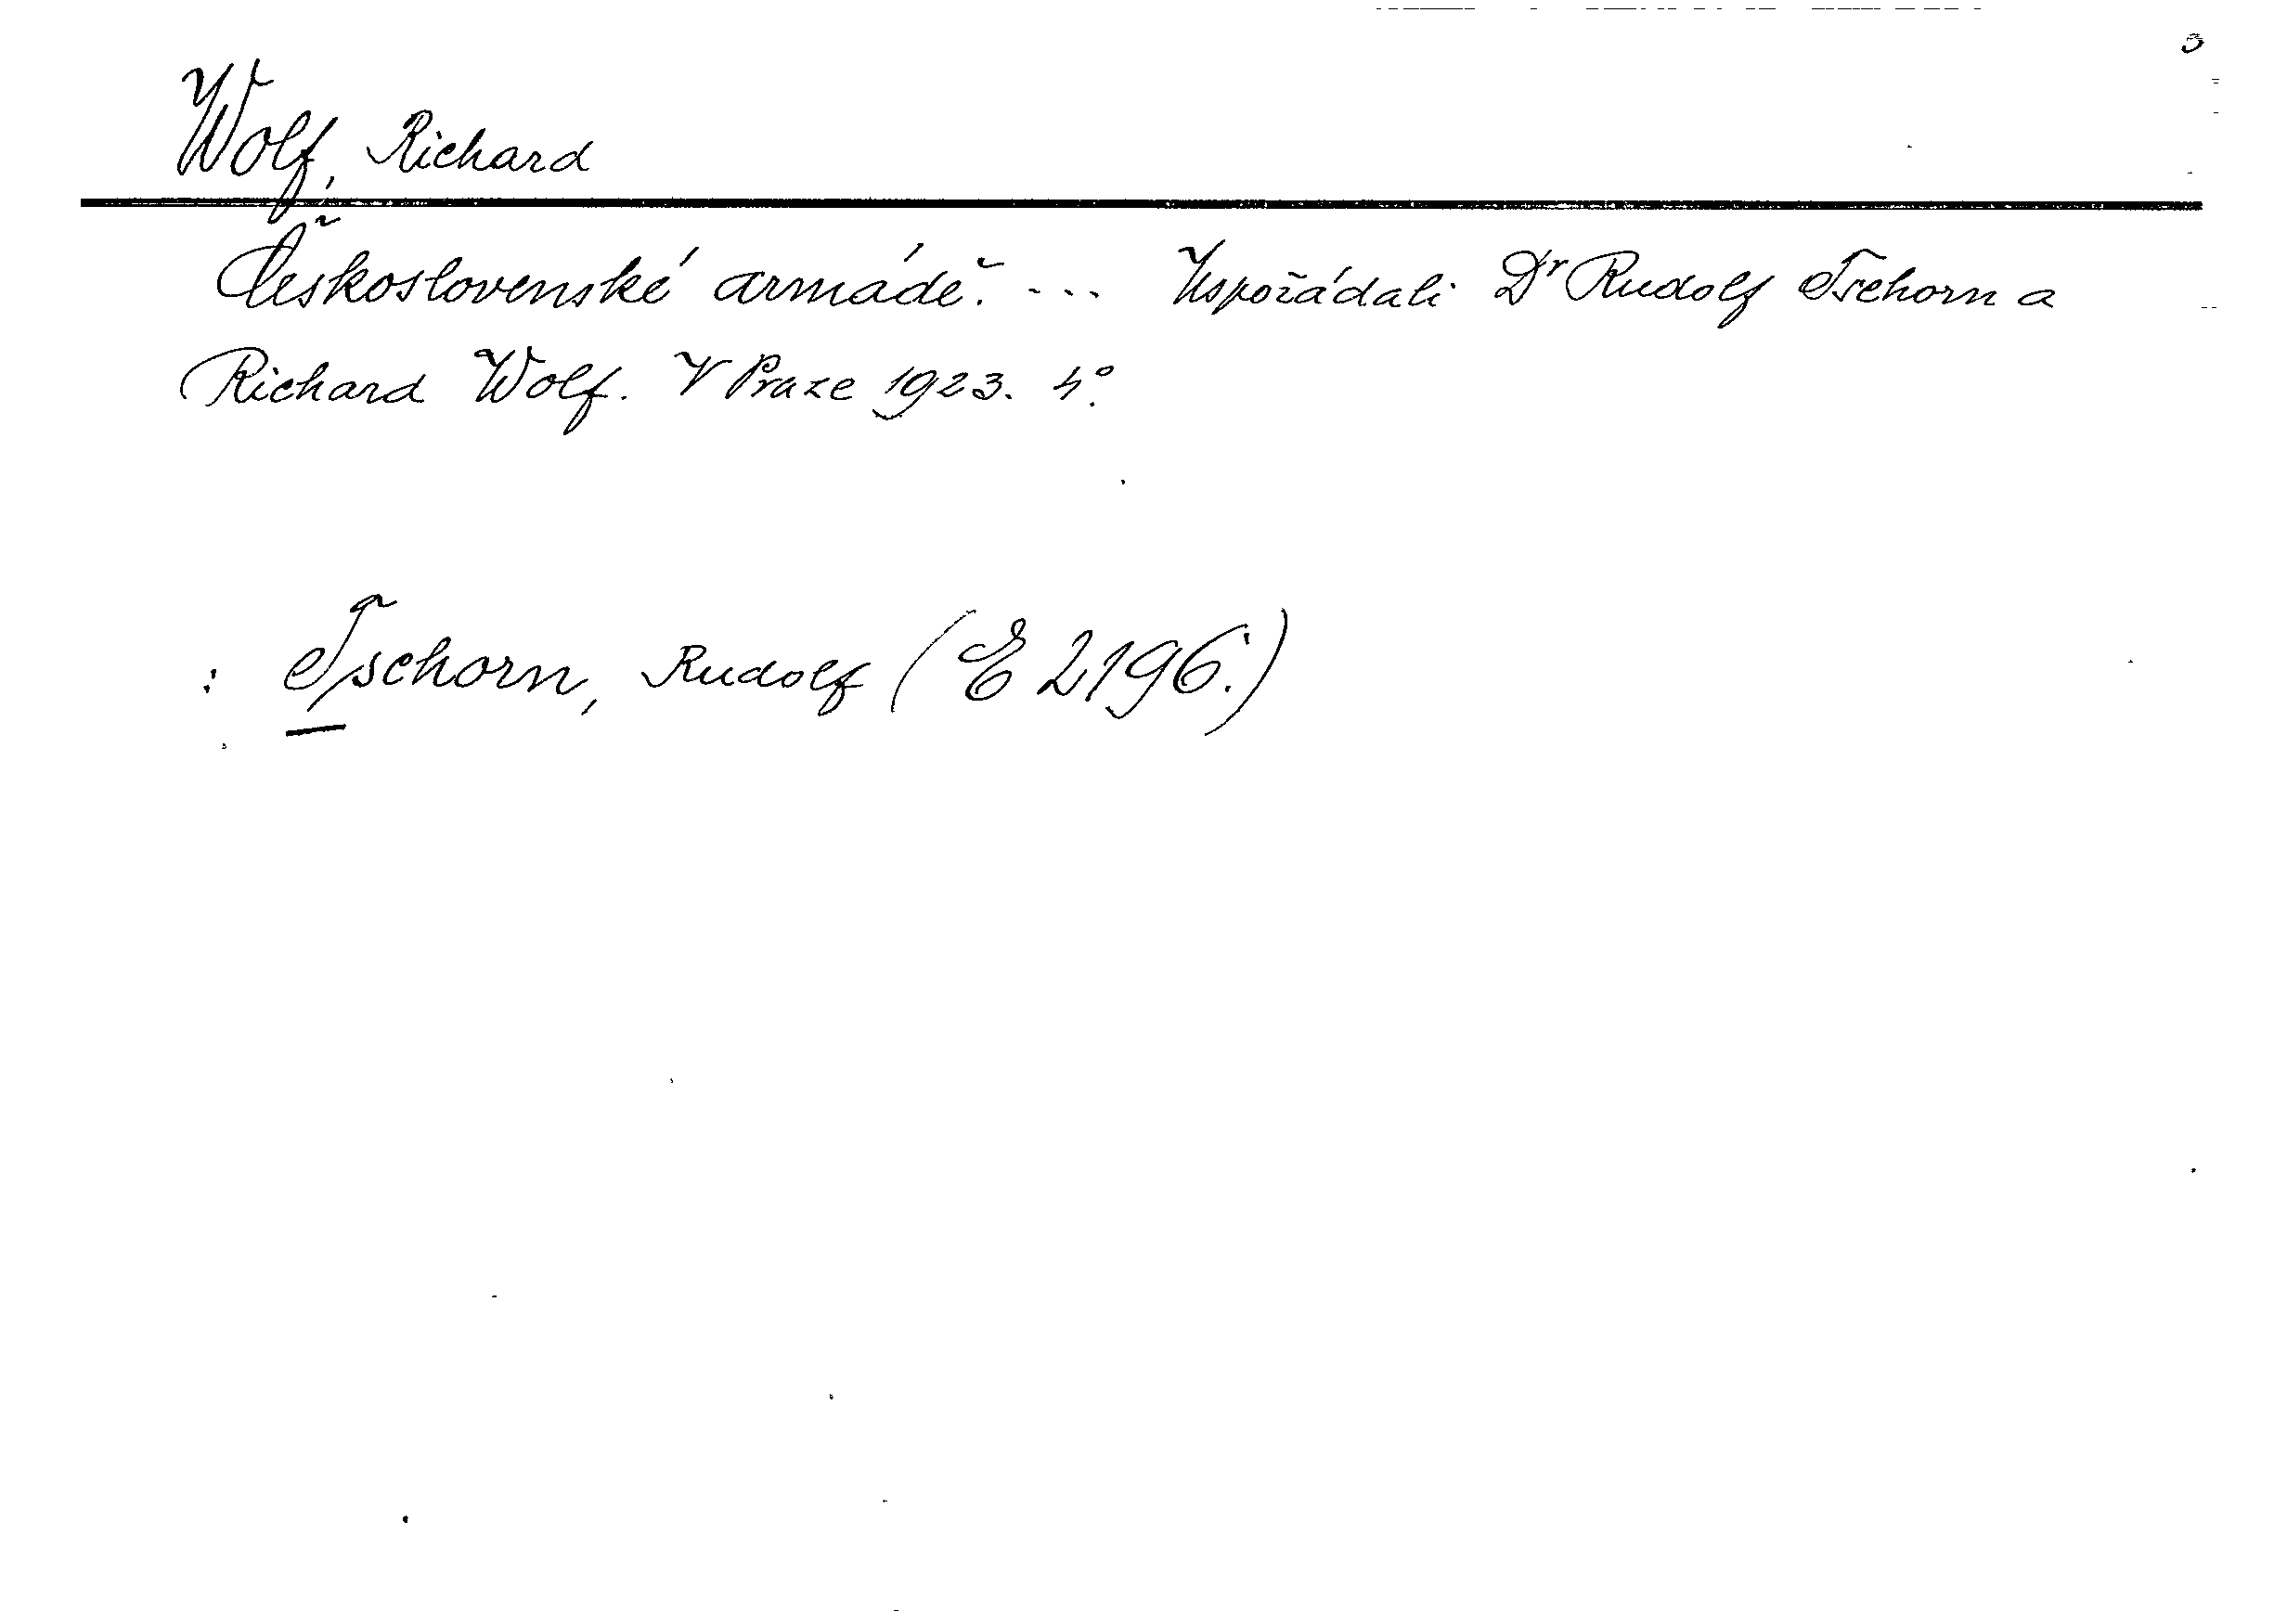 Wolf, Richard
Československé armádě. ... Uspořádali Dr Rudolf Tschorn a
Richard Wolf. V Praze 1923. 4°.
: Tschorn, Rudolf (E 2196.)